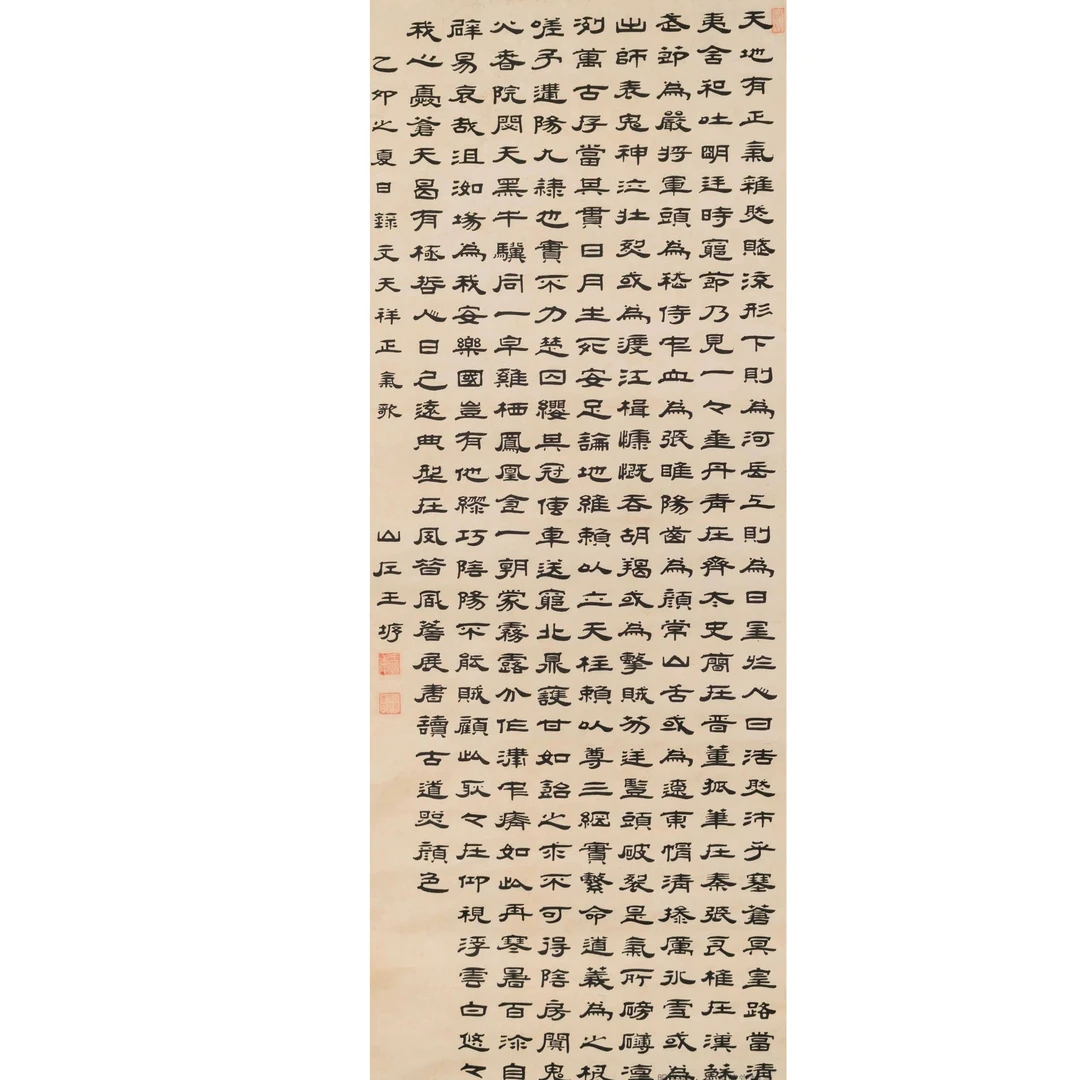 天地有正氣雜然賦流形下則為河岳上則為日星於人曰浩然沛乎塞蒼冥皇路當清
夷含和吐明廷時窮節乃見一々垂丹青在齊太史簡在晉董狐筆在秦張良椎在漢蘇
武節為嚴將軍頭為嵇侍中血為張睢陽齒為顏常山舌或為遼東帽清操厲冰雪或為
出師表鬼神泣壯烈或為渡江楫慷慨吞胡羯或為擊賊笏逆豎頭破裂是氣所磅礴凜
冽萬古存當其貫日月生死安足論地維賴以立天柱賴以尊三綱實繫命道義為之根
嗟予遘陽九隸也實不力楚囚纓其冠傳車送窮北鼎鑊甘如飴之求不可得陰房闃鬼
火春院閟天黑牛驥同一皁雞栖鳳凰食一朝蒙霧露分作溝中瘠如此再寒暑百沴自
辟易哀哉沮洳場為我安樂國豈有他繆巧陰陽不能賊顧此耿々在仰視浮雲白悠々
我心憂蒼天曷有極哲人日已遠典型在夙昔風簷展書讀古道照顏色
乙卯之夏日錄文天祥正氣歌
山左王垿